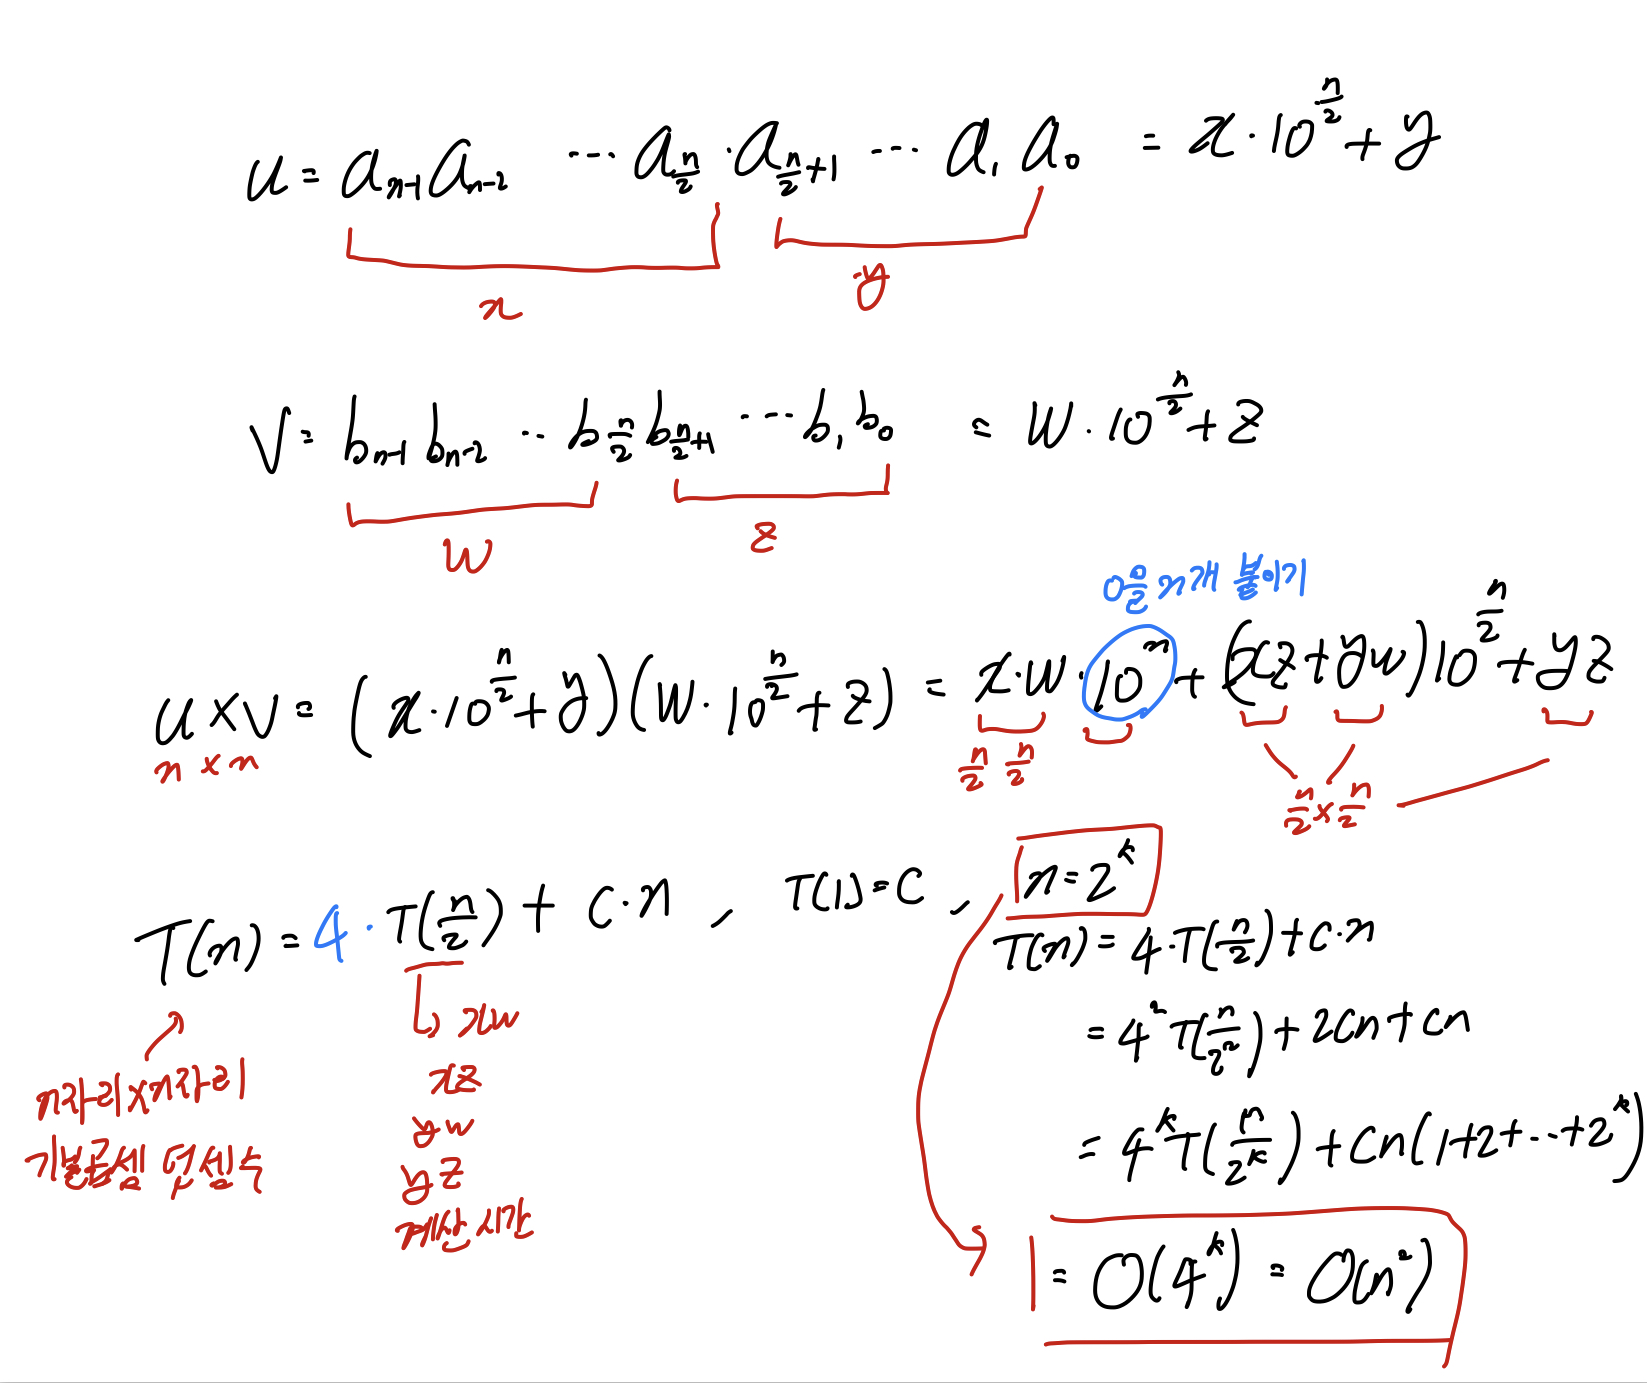 u = a_{n-1} a_{n-2} ... a_{n/2} · a_{n/2+1} ... a_1 a_0 = x · 10^{n/2} + y
x
y
V = b_{n-1} b_{n-2} .. b_{n/2} b_{n/2+1} ... b_1 b_0 = w · 10^{n/2} + z
w
z
0을 n개 붙이기
u × v = (x · 10^{n/2} + y)(w · 10^{n/2} + z) = x · w · 10^n + (xz + yw) 10^{n/2} + yz
n × n
n/2 n/2
n/2 × n/2
T(n) = 4 · T(n/2) + c · n , T(1) = C , n = 2^k
n자리×n자리
기본곱셈 덧셈수
xw
xz
yw
yz
계산시간
T(n) = 4 · T(n/2) + c · n
= 4^2 T(n/2^2) + 2cn + cn
= 4^k T(n/2^k) + cn(1+2+...+2^k)
= O(4^k) = O(n^2)